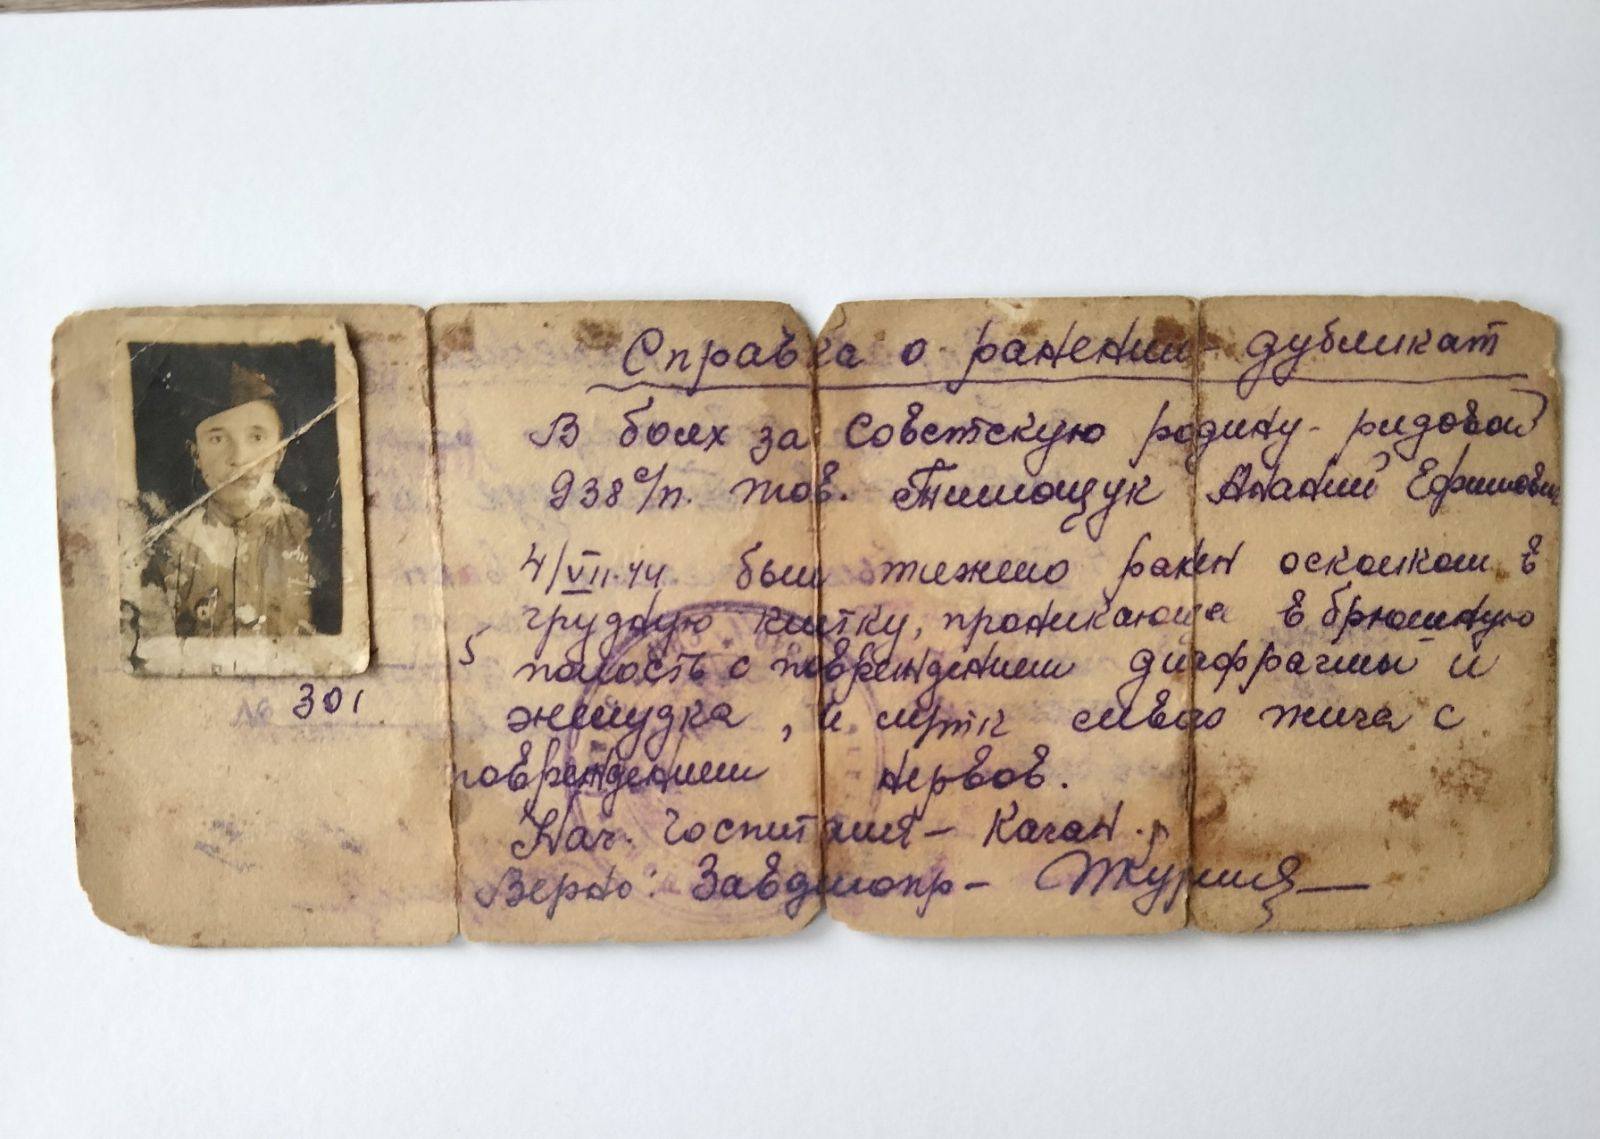 Справка о ранении - дубликат
В боях за Советскую родину - рядовой
938 с/п. тов. Тимощук Ананий Ефимович
4/VII-44 был тяжело ранен осколком в
грудную клетку, проникающа в брюшную
полость с повреждением диафрагмы и
желудка, и мягк левого плеча с
повреждением нервов.
Нач. Госпиталя - Каган.
Верно: Завделопр -
301